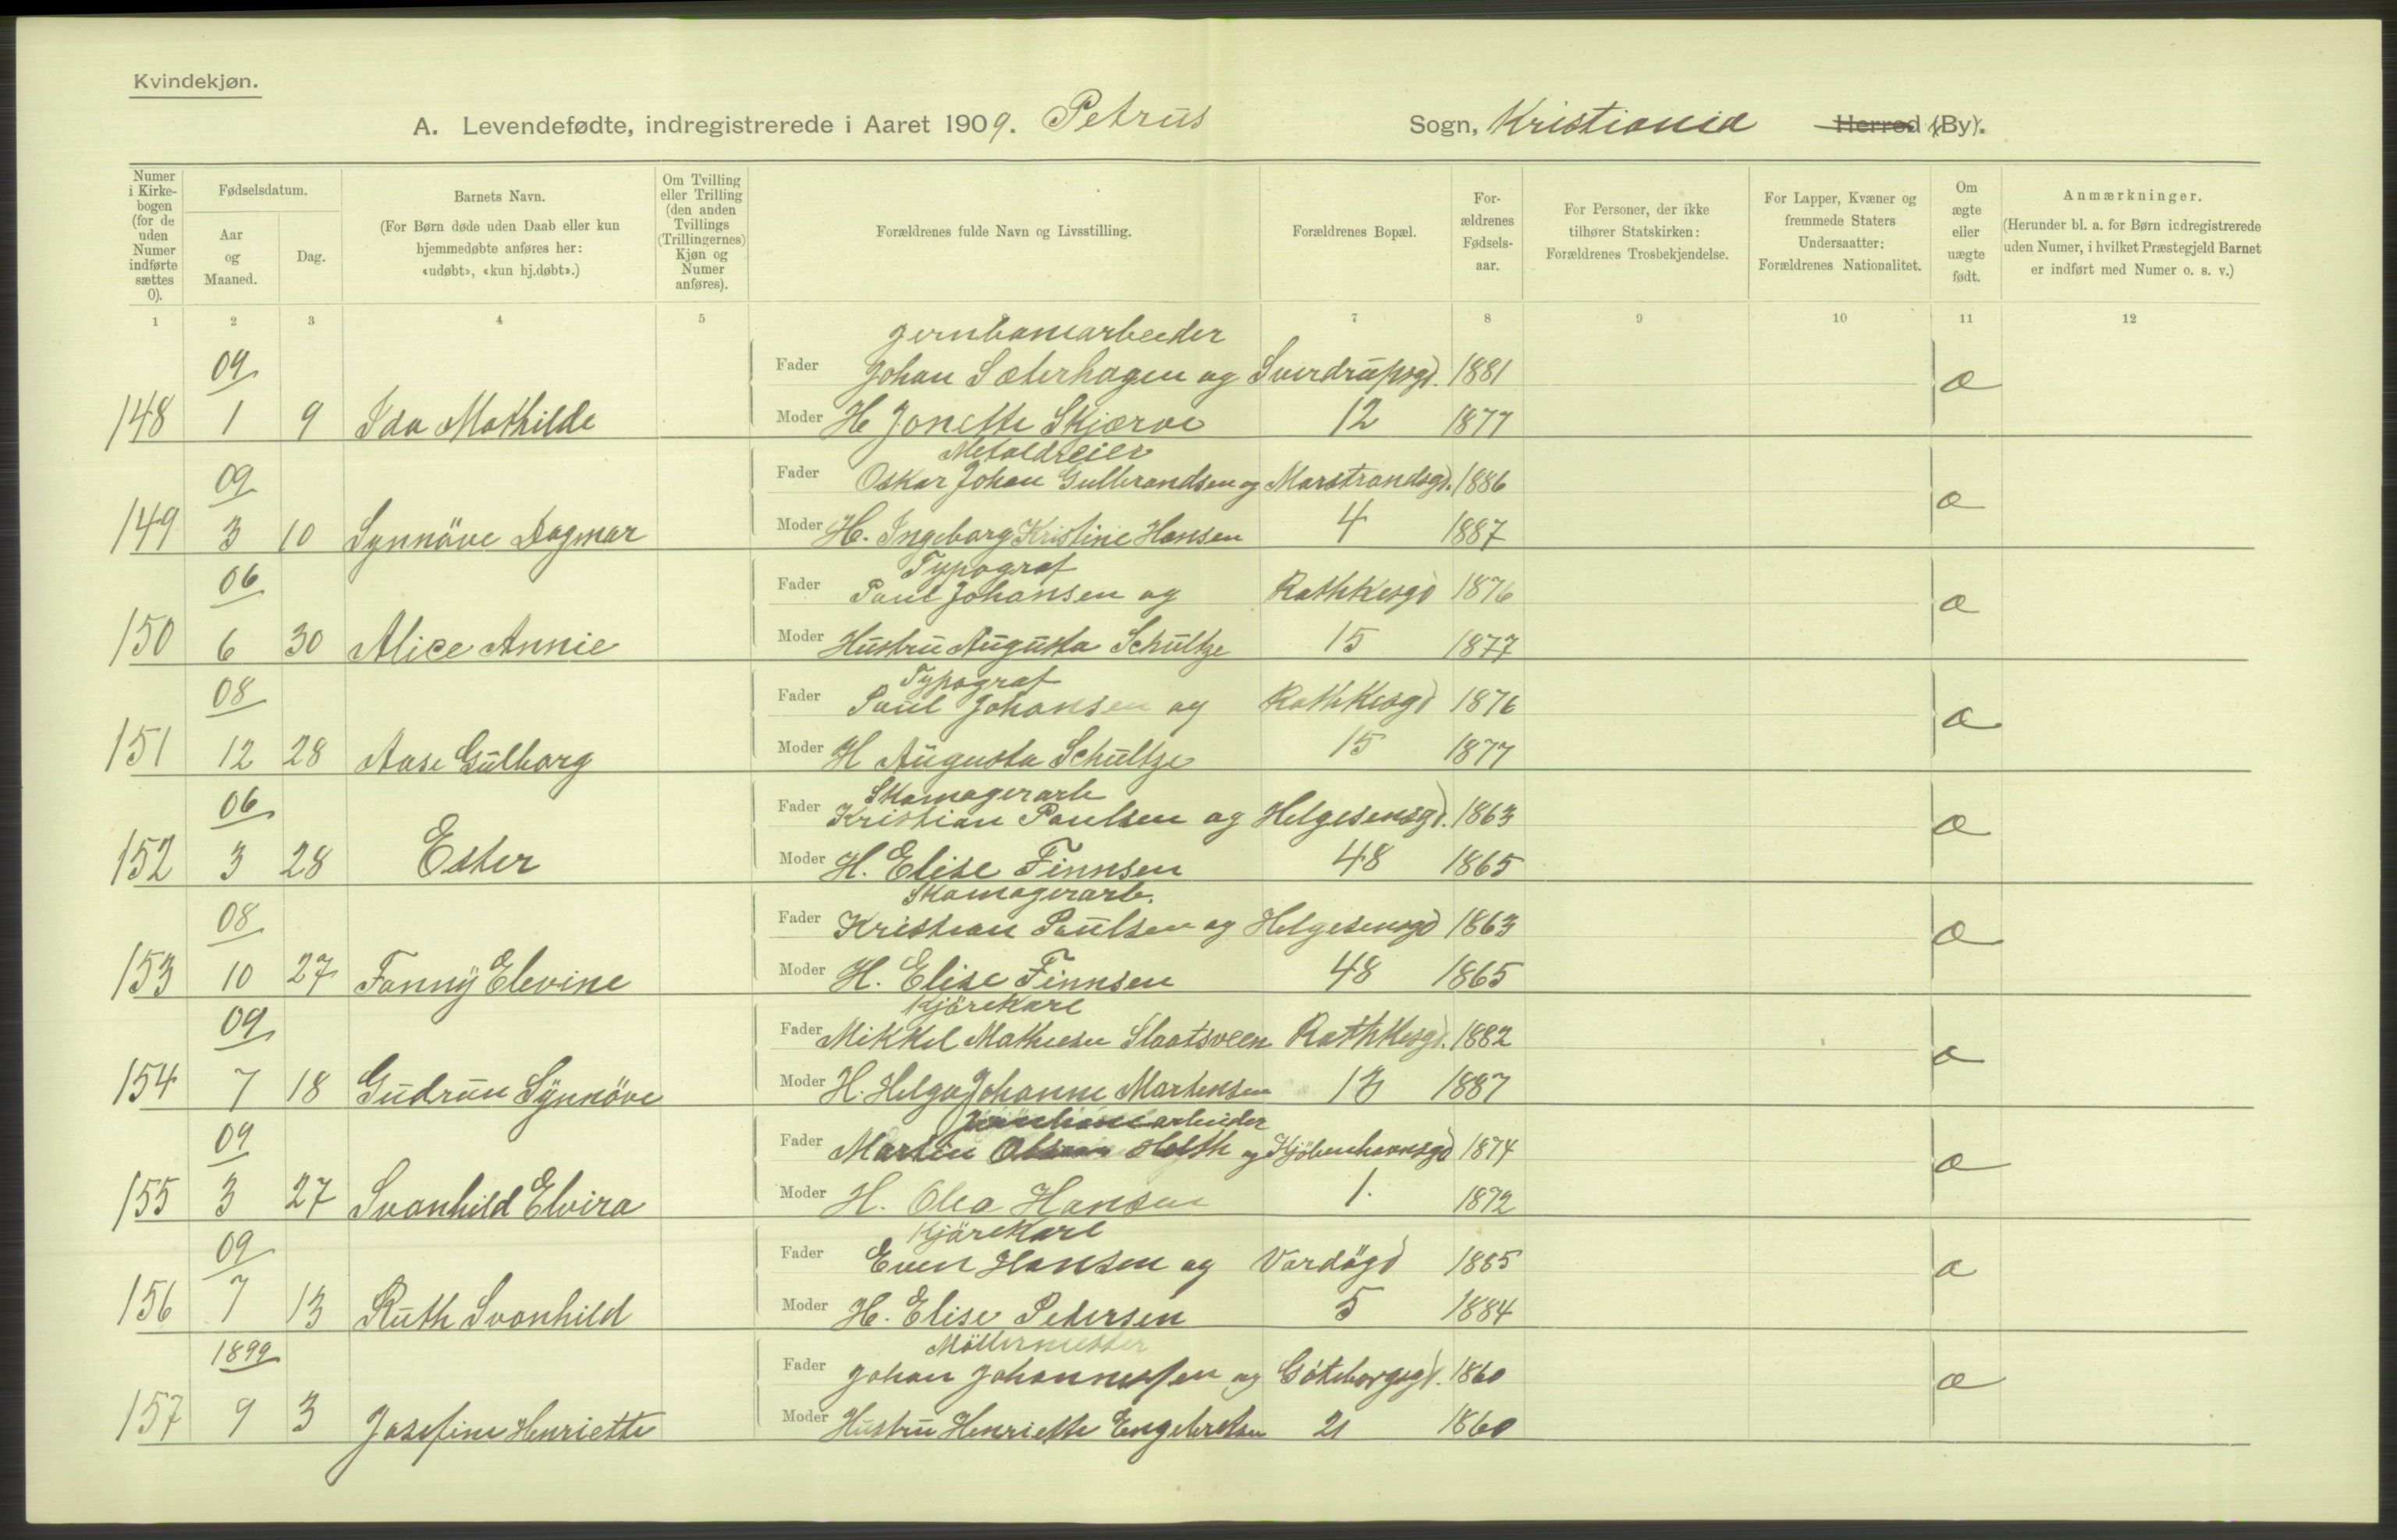 Kvindekjøn.
A. Levendefødte, indregistrerede i Aaret 1909. Petrus Sogn, Kristiania Herred (By).
Numer i Kirkebogen (for de uden Numer indførte sættes 0).
Fødselsdatum.
Aar og Maaned.
Dag.
Barnets Navn.
(For Børn døde uden Daab eller kun hjemmedøbte anføres her: «udøbt», «kun hj.døbt».)
Om Tvilling eller Trilling (den anden Tvillings (Trillingernes) Kjøn og Numer anføres).
Forældrenes fulde Navn og Livsstilling.
Forældrenes Bopæl.
Forældrenes Fødselsaar.
For Personer, der ikke tilhører Statskirken: Forældrenes Trosbekjendelse.
For Lapper, Kvæner og fremmede Staters Undersaatter: Forældrenes Nationalitet.
Om ægte eller uægte født.
Anmærkninger.
(Herunder bl. a. for Børn indregistrerede uden Numer, i hvilket Præstegjeld Barnet er indført med Numer o. s. v.)
1 2 3 4 5 7 8 9 10 11 12
Jernbanearbeider
09 Fader Johan Sæterhagen og Sverdrupsgd. 1881 æ
148 1 9 Ida Mathilde Moder H Jonette Skjærve 12 1877
Metaldreier
09 Fader Oskar Johan Gulbrandsen og Marstrandsgd. 1886 æ
149 3 10 Synnöve Dagmar Moder H. Ingeborg Kristine Hansen 4 1887
Typograf
06 Fader Paul Johansen og Rathkesgd 1876 æ
150 6 30 Alice Annie Moder Hustru Augusta Schultze 15 1877
Typograf
08 Fader Paul Johansen og Rathkesgd 1876 æ
151 12 28 Aase Gulborg Moder H Augusta Schultze 15 1877
Skomagerarb
06 Fader Kristian Paulsen og Helgesensgd. 1863 æ
152 3 28 Ester Moder H. Elise Finnsen 48 1865
Skomagerarb.
08 Fader Kristian Paulsen og Helgesensgd 1863 æ
153 10 27 Fanny Elevine Moder H. Elise Finnsen 48 1865
Kjörekarl
09 Fader Mikkel Mathisen Slaatsveen Rathkesgd. 1882 æ
154 7 18 Gudrun Synnöve Moder H. Helga Johanne Martinsen 13 1887
arbeider
09 Fader Martin Holth og Kjöbenhavnsgd 1874 æ
155 3 27 Svanhild Elvira Moder H. Olea Hansen 1. 1872
Kjörekarl
09 Fader Even Hansen og Vardögd 1885 æ
156 7 13 Ruth Svanhild Moder H. Elise Petersen 5 1884
Möllermester
1899 Fader Johan Johannessen og Göteborgsgd. 1860 æ
157 9 3 Josefine Henriette Moder Hustru Henriette Engebretsen 21 1860